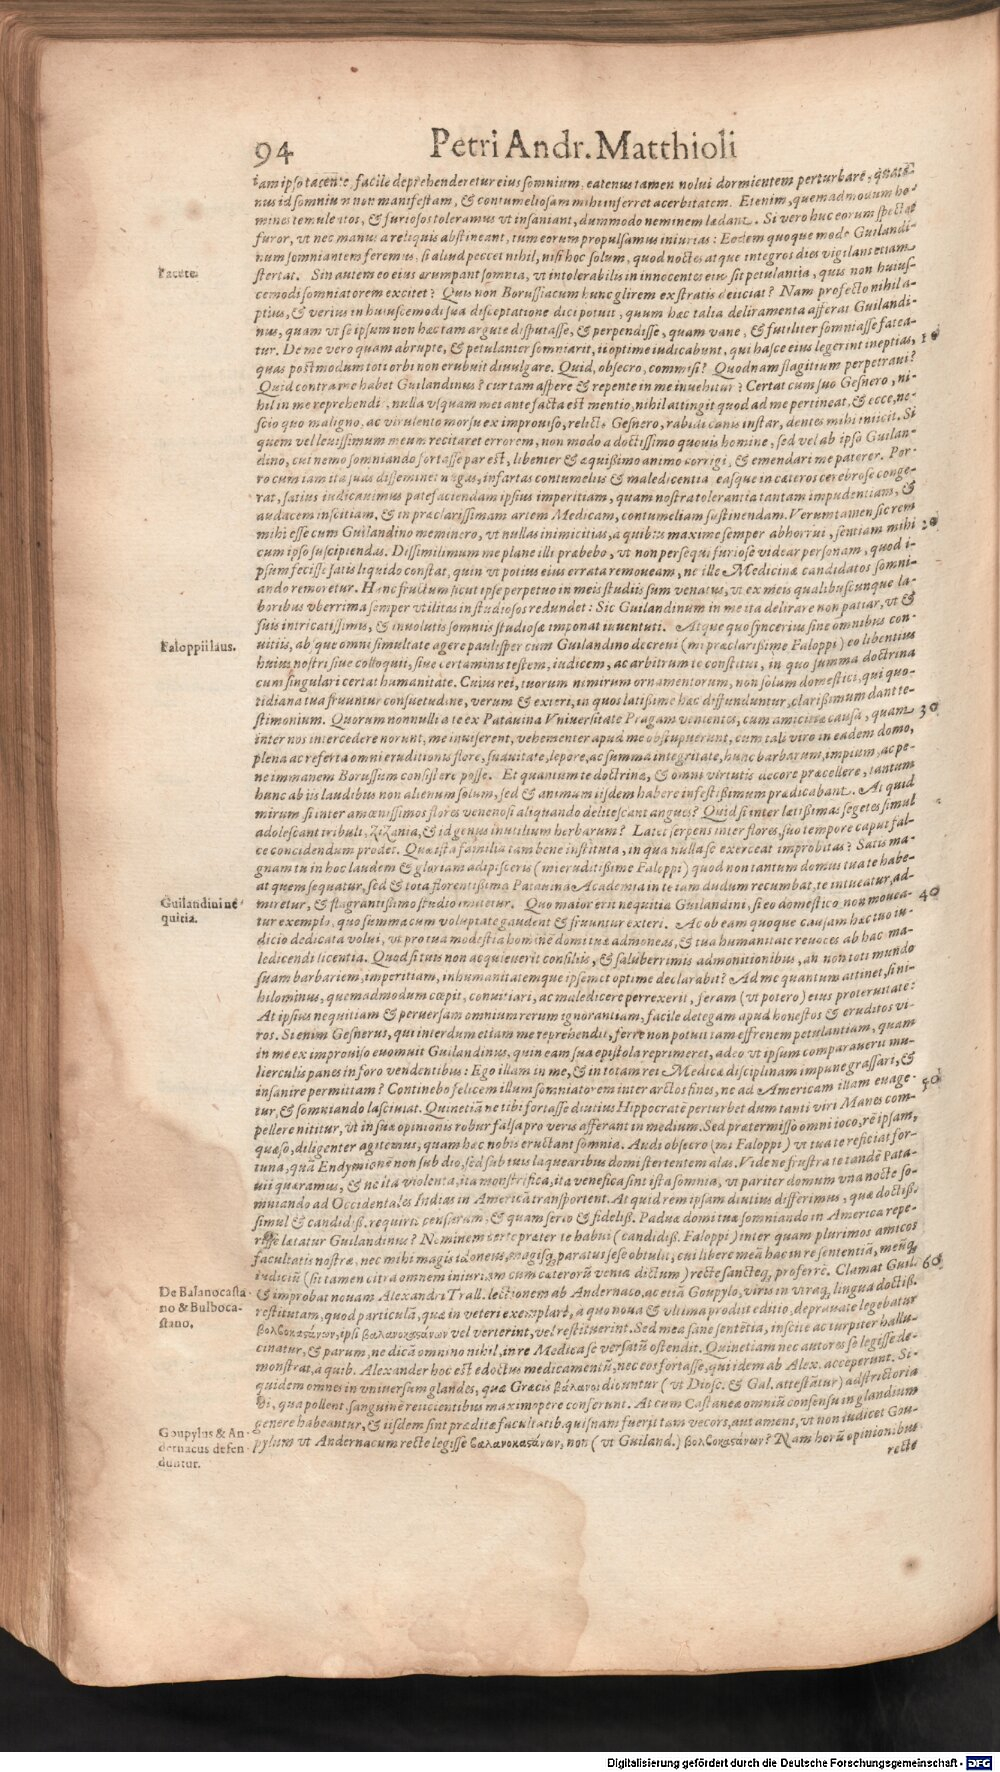 94
Petri Andr. Matthioli
iam ipso tacente, facile deprehenderetur eius somnium, eatenus tamen nolui dormientem perturbare, quate-
nus id somnium non manifestam, & contumeliosam mihi inferret acerbitatem. Etenim, quemadmodum ho-
mines temulentos, & furiosos toleramus vt insaniant, dummodo neminem lædant. Si vero huc eorum spectat
furor, vt nec manus a reliquis abstineant, tum eorum propulsamus iniurias: Eodem quoque modo Guilandi-
num somniantem feremus, si aliud peccet nihil, nisi hoc solum, quod noctes atque integros dies vigilans etiam
Facete.
stertat. Sin autem eo eius erumpant somnia, vt intolerabilis in innocentes eius sit petulantia, quis non huius-
cemodi somniatorem excitet? Quis non Borussiacum hunc glirem ex stratis deiiciat? Nam profecto nihil a-
ptius, & verius in huiuscemodi sua disceptatione dici potuit, quum hæc talia deliramenta afferat Guilandi-
nus, quam vt se ipsum non hæc tam argute disputasse, & perpendisse, quam vane, & futiliter somniasse fatea-
tur. De me vero quam abrupte, & petulanter somniarit, ii optime iudicabunt, qui hasce eius legerint ineptias, 10
quas postmodum toti orbi non erubuit diuulgare. Quid, obsecro, commisi? Quodnam flagitium perpetraui?
Quid contra me habet Guilandinus? cur tam aspere & repente in me inuehitur? Certat cum suo Gesnero, ni-
hil in me reprehendit, nulla vsquam mei ante facta est mentio, nihil attingit quod ad me pertineat, & ecce, ne-
scio quo maligno, ac virulento morsu ex improuiso, relicto Gesnero, rabidi canis instar, dentes mihi iniicit. Si
quem vel leuissimum meum recitaret errorem, non modo a doctissimo quouis homine, sed vel ab ipso Guilan-
dino, cui nemo somniando fortasse par est, libenter & æquißimo animo corrigi, & emendari me paterer. Por-
ro cum iam ita suas disseminet nugas, infartas contumeliis & maledicentia easque in cæteros cerebrose conge-
rat, satius iudicauimus patefaciendam ipsius imperitiam, quam nostra tolerantia tantam impudentiam, &
audacem inscitiam, & in præclarissimam artem Medicam, contumeliam sustinendam. Verumtamen sic rem
mihi esse cum Guilandino meminero, vt nullas inimicitias, a quibus maxime semper abhorrui, sentiam mihi 20
cum ipso suscipiendas. Dissimilimum me plane illi præbebo, vt non persequi furiose videar personam, quod i-
psum fecisse satis liquido constat, quin vt potius eius errata remoueam, ne ille Medicinæ candidatos somni-
ando remoretur. Hunc fructum sicut ipse perpetuo in meis studiis sum venatus, vt ex meis qualibuscunque la-
boribus vberrima semper vtilitas in studiosos redundet: Sic Guilandinum in me ita delirare non patiar, vt &
suis intricatissimis, & inuolutis somniis studiosæ imponat iuuentuti. Atque quo syncerius sine omnibus con-
Faloppii laus.
uitiis, absque omni simultate agere paulisper cum Guilandino decreui (mi præclarißime Faloppi) eo libentius
huius nostri siue colloquii, siue certaminis testem, iudicem, ac arbitrum te constitui, in quo summa doctrina
cum singulari certat humanitate. Cuius rei, tuorum nimirum ornamentorum, non solum domestici, qui quo-
tidiana tua fruuntur consuetudine, verum & exteri, in quos latißime hæc diffunduntur, clarißimum dant te-
stimonium. Quorum nonnulli a te ex Patauina Vniuersitate Pragam venientes, cum amicitiæ causa, quam 30
inter nos intercedere norunt, me inuiserent, vehementer apud me obstupuerunt, cum tali viro in eadem domo,
plena ac referta omni eruditionis flore, suauitate, lepore, ac summa integritate, hunc barbarum, impium, ac pe-
ne immanem Borussum consistere posse. Et quantum te doctrina, & omni virtutis decore præcellere, tantum
hunc ab iis laudibus non alienum solum, sed & animum iisdem habere infestißimum prædicabant. At quid
mirum si inter amœnissimos flores venenosi aliquando delitescant angues? Quid si inter lætißimas segetes simul
adolescant tribuli, zizania, & id genus inutilium herbarum? Latet serpens inter flores, suo tempore caput fal-
ce concidendum prodet. Quæ ista familia tam bene instituta, in qua nulla se exerceat improbitas? Satis ma-
gnam tu in hoc laudem & gloriam adipisceris (mi eruditißime Faloppi) quod non tantum domus tua te habe-
at quem sequatur, sed & tota florentißima Patauina Academia in te iam dudum recumbat, te intueatur, ad-
Guilandini ne-
quitia.
miretur, & flagrantißimo studio imitetur. Quo maior erit nequitia Guilandini, si eo domestico non mouea- 40
tur exemplo, quo summa cum voluptate gaudent & fruuntur exteri. Ac ob eam quoque causam hæc tuo iu-
dicio dedicata volui, vt pro tua modestia hominē domi tuæ admoneas, & tua humanitate reuoces ab hac ma-
ledicendi licentia. Quod si tuis non acquieuerit consiliis, & saluberrimis admonitionibus, an non toti mundo
suam barbariem, imperitiam, inhumanitatemque ipsemet optime declarabit? Ad me quantum attinet, si ni-
hilominus, quemadmodum cœpit, conuitiari, ac maledicere perrexerit, feram (vt potero) eius proteruitatē:
At ipsius nequitiam & peruersam omnium rerum ignorantiam, facile detegam apud honestos & eruditos vi-
ros. Si enim Gesnerus, qui interdum etiam me reprehendit, ferre non potuit tam effrenem petulantiam, quam
in me ex improuiso euomuit Guilandinus, quin eam sua epistola reprimeret, adeo vt ipsum comparauerit mu-
lierculis panes in foro vendentibus: Ego illam in me, & in totam rei Medicæ disciplinam impune grassari, &
insanire permittam? Continebo felicem illum somniatorem inter arctos fines, ne ad Americam illam euage- 50
tur, & somniando lasciuiat. Quinetiā ne tibi fortasse diutius Hippocratē perturbet dum tanti viri Manes com-
pellere nititur, vt in suæ opinionis robur falsa pro veris afferant in medium. Sed prætermisso omni ioco, rē ipsam,
quæso, diligenter agitemus, quam hæc nobis eructant somnia. Audi obsecro (mi Faloppi) vt tua te reficiat for-
tuna, quā Endymionē non sub dio, sed sub tuis laquearibus domi stertentem alas. Vide ne frustra te tandē Pata-
uii quæramus, & ne ita violenta, ita monstrifica, ita venefica sint ista somnia, vt pariter domum vna nocte so-
mniando ad Occidentales Indias in Americā transportent. At quid rem ipsam diutius differimus, quæ doctiß.
simul & candidiß. requirit censuram, & quam serio & fideliß. Paduæ domi tuæ somniando in America repe-
risse lætatur Guilandinus? Neminem certe præter te habui (candidiß. Faloppi) inter quam plurimos amicos
facultatis nostræ, nec mihi magis idoneus, magisq; paratus sese obtulit, cui libere meā hac in re sententiā, meūq;
iudiciū (sit tamen citra omnem iniuriam cum cæterorū venia dictum) recte sancteq; proferrē. Clamat Guil. 60
De Balanocasta-
no & Bulboca-
stano.
& improbat nouam Alexandri Trall. lectionem ab Andernaco, ac etiā Goupylo, viris in vtraq; lingua doctiß.
restitutam, quod particulā, quæ in veteri exemplari, a quo noua & vltima prodiit editio, deprauate legebatur
βολβοκαστάνων, ipsi βαλανοκαστάνων vel verterint, vel restituerint. Sed mea sane sentētia, inscite ac turpiter hallu-
cinatur, & parum, ne dicā omnino nihil, in re Medica se versatū ostendit. Quinetiam nec autores se legisse de-
monstrat, a quib. Alexander hoc est edoctus medicamentū, nec eos fortasse, qui idem ab Alex. acceperunt. Si-
quidem omnes in vniuersum glandes, quæ Græcis βάλανοι dicuntur (vt Diosc. & Gal. attestātur) adstrictoria
vi, qua pollent, sanguinē reiicientibus maximopere conferunt. At cum Castaneæ omniū consensu in glandium
genere habeantur, & iisdem sint præditæ facultatib. quisnam fuerit tam vecors, aut amens, vt non iudicet Gou-
Goupylus & An-
dernacus defen-
duntur.
pylum vt Andernacum recte legisse βαλανοκαστάνων, non (vt Guiland.) βολβοκαστάνων? Nam horū opinionibus
recte
Digitalisierung gefördert durch die Deutsche Forschungsgemeinschaft - DFG